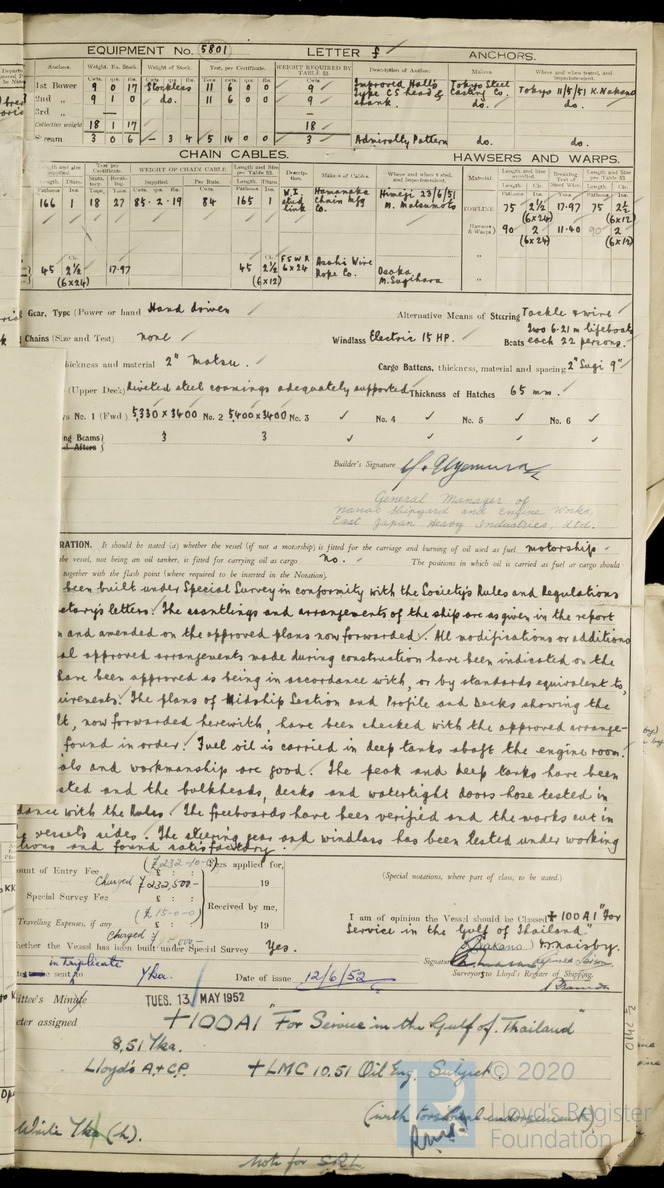 EQUIPMENT No. 5801 LETTER f ANCHORS.
Anchors. Weight. Ex. Stock. Weight of Stock. Test, per Certificate. WEIGHT REQUIRED BY TABLE 53. Description of Anchor. Makers. Where and when tested, and Superintendent.
1st Bower 9 0 17 Stockless 11 6 0 0 9 Improved Hall's type C S head & shank. Tokyo Steel Casting Co. Tokyo 11/5/51 K. Nakano
2nd „ 9 1 0 do. 11 6 0 0 9 do. do.
3rd „ — —
Collective weight 18 1 17 18
Stream 3 0 6 – 3 4 5 14 0 0 3 Admiralty Pattern do. do.
CHAIN CABLES. HAWSERS AND WARPS.
WEIGHT OF CHAIN CABLE
Supplied. Per Rule.
Makers of Cables. Where and when tested, and Superintendent. Material.
166 1 18 27 85-2-19 84 165 1 W.I. stud link Hamanaka Chain Mfg Co. Himeji 23/6/51 M. Matsumoto
TOWLINE 75 2½ (6x24) 17.97 75 2½ (6x12)
Hawsers & Warps 90 2 (6x24) 11.40 90 2 (6x12)
45 2½ (6x24) 17.97 45 2½ (6x12) F S W R 6x24 Asahi Wire Rope Co. Osaka M. Sugihara
Gear, Type (Power or hand) Hand driven Alternative Means of Steering Tackle & wire
Chains (Size and Test) none Windlass Electric 15 HP. Boats Two 6.21 m lifeboats each 22 persons.
hickness and material 2" Matsu. Cargo Battens, thickness, material and spacing 2" Sugi 9"
(Upper Deck) Riveted steel coamings adequately supported Thickness of Hatches 65 mm.
No. 1 (Fwd) 5,330 x 3400 No. 2 5,400 x 3400 No. 3 No. 4 No. 5 No. 6
ng Beams 3 3
Builder's Signature
General Manager of
Nanao Shipyard and Engine Works,
East Japan Heavy Industries, Ltd.
RATION. It should be stated (a) whether the vessel (if not a motorship) is fitted for the carriage and burning of oil used as fuel motorship
the vessel, not being an oil tanker, is fitted for carrying oil as cargo no. The positions in which oil is carried as fuel or cargo should
together with the flash point (where required to be inserted in the Notation).
been built under Special Survey in conformity with the Society's Rules and Regulations
etary's letters. The scantlings and arrangements of the ship are as given in the report
n and amended on the approved plans now forwarded. All modifications or additions
al approved arrangements made during construction have been indicated on the
have been approved as being in accordance with, or by standards equivalent to,
uirements. The plans of Midship Section and Profile and Decks showing the
lt, now forwarded herewith, have been checked with the approved arrange-
found in order. Fuel oil is carried in deep tanks abaft the engine room.
als and workmanship are good. The peak and deep tanks have been
sted and the bulkheads, decks and watertight doors hose tested in
dance with the Rules. The freeboards have been verified and the marks cut in
vessel's sides. The steering gear and windlass has been tested under working
tions and found satisfactory.
ount of Entry Fee (£232-10-0) Fees applied for,
Charged ¥232,500.- 19
Special Survey Fee £ : :
(£15-0-0) Received by me,
Travelling Expenses, if any £ : : 19
Charged ¥15,000.-
(Special notations, where part of class, to be stated.)
I am of opinion the Vessel should be Classed +100A1 "For
Service in the Gulf of Thailand".
hether the Vessel has been built under Special Survey Yes.
Signature
Surveyors to Lloyd's Register of Shipping.
in triplicate
sent to Yka. Date of issue 12/6/52
ittee's Minute TUES. 13 MAY 1952
cter assigned +100A1 "For Service in the Gulf of Thailand"
8.51 Yka.
Lloyd's A & CP. +LMC 10.51 Oil Eng. Subject.
(with torsional endorsement)
Write Yka (h).
Note for SRL
© 2020
Lloyd's Register
Foundation